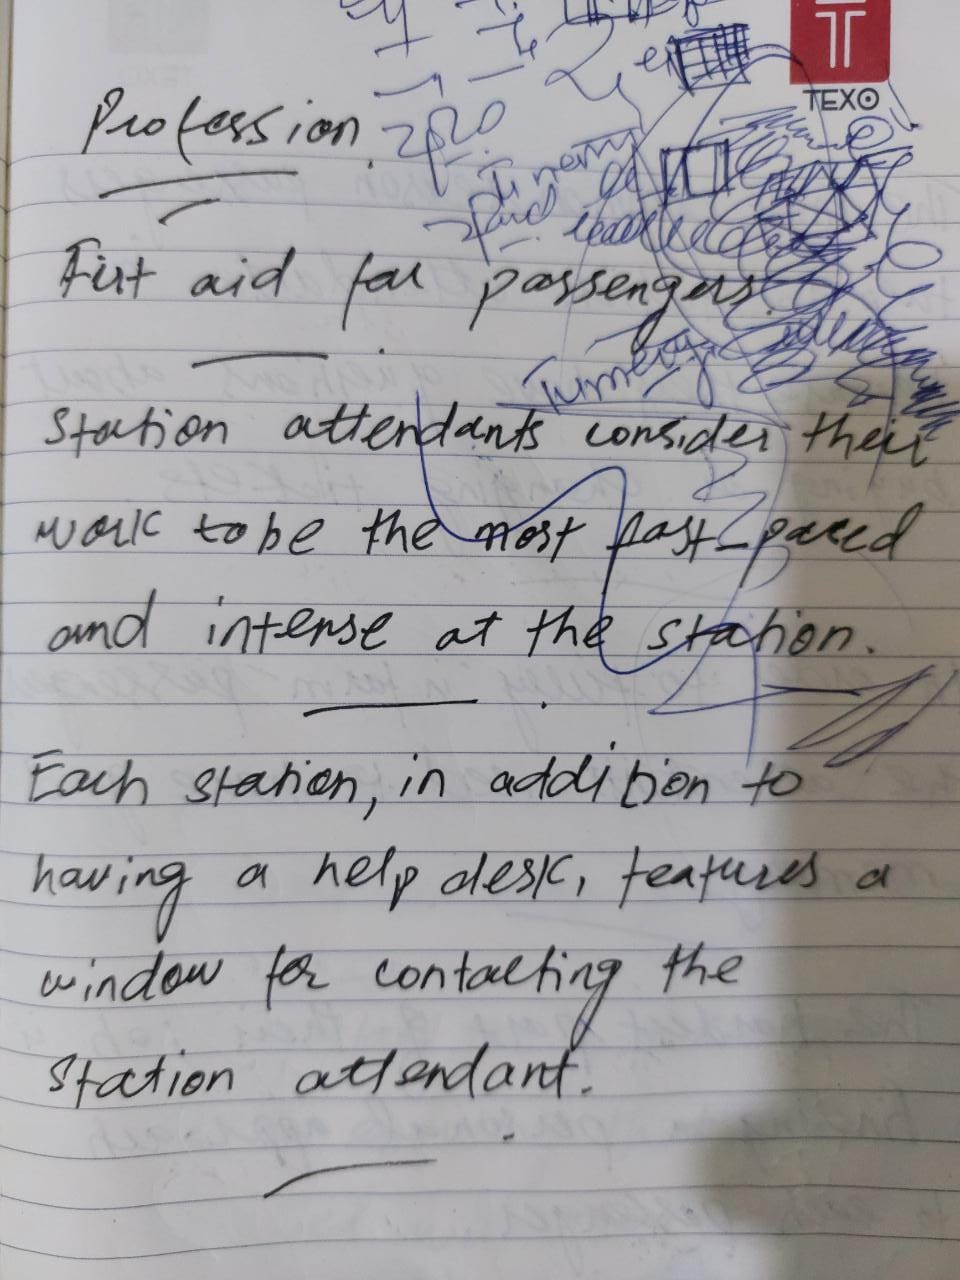 TEXO
Profession.
First aid for passengers.
Station attendants consider their
work to be the most fast-paced
and intense at the station.
Each station, in addition to
having a help desk, features a
window for contacting the
station attendant.